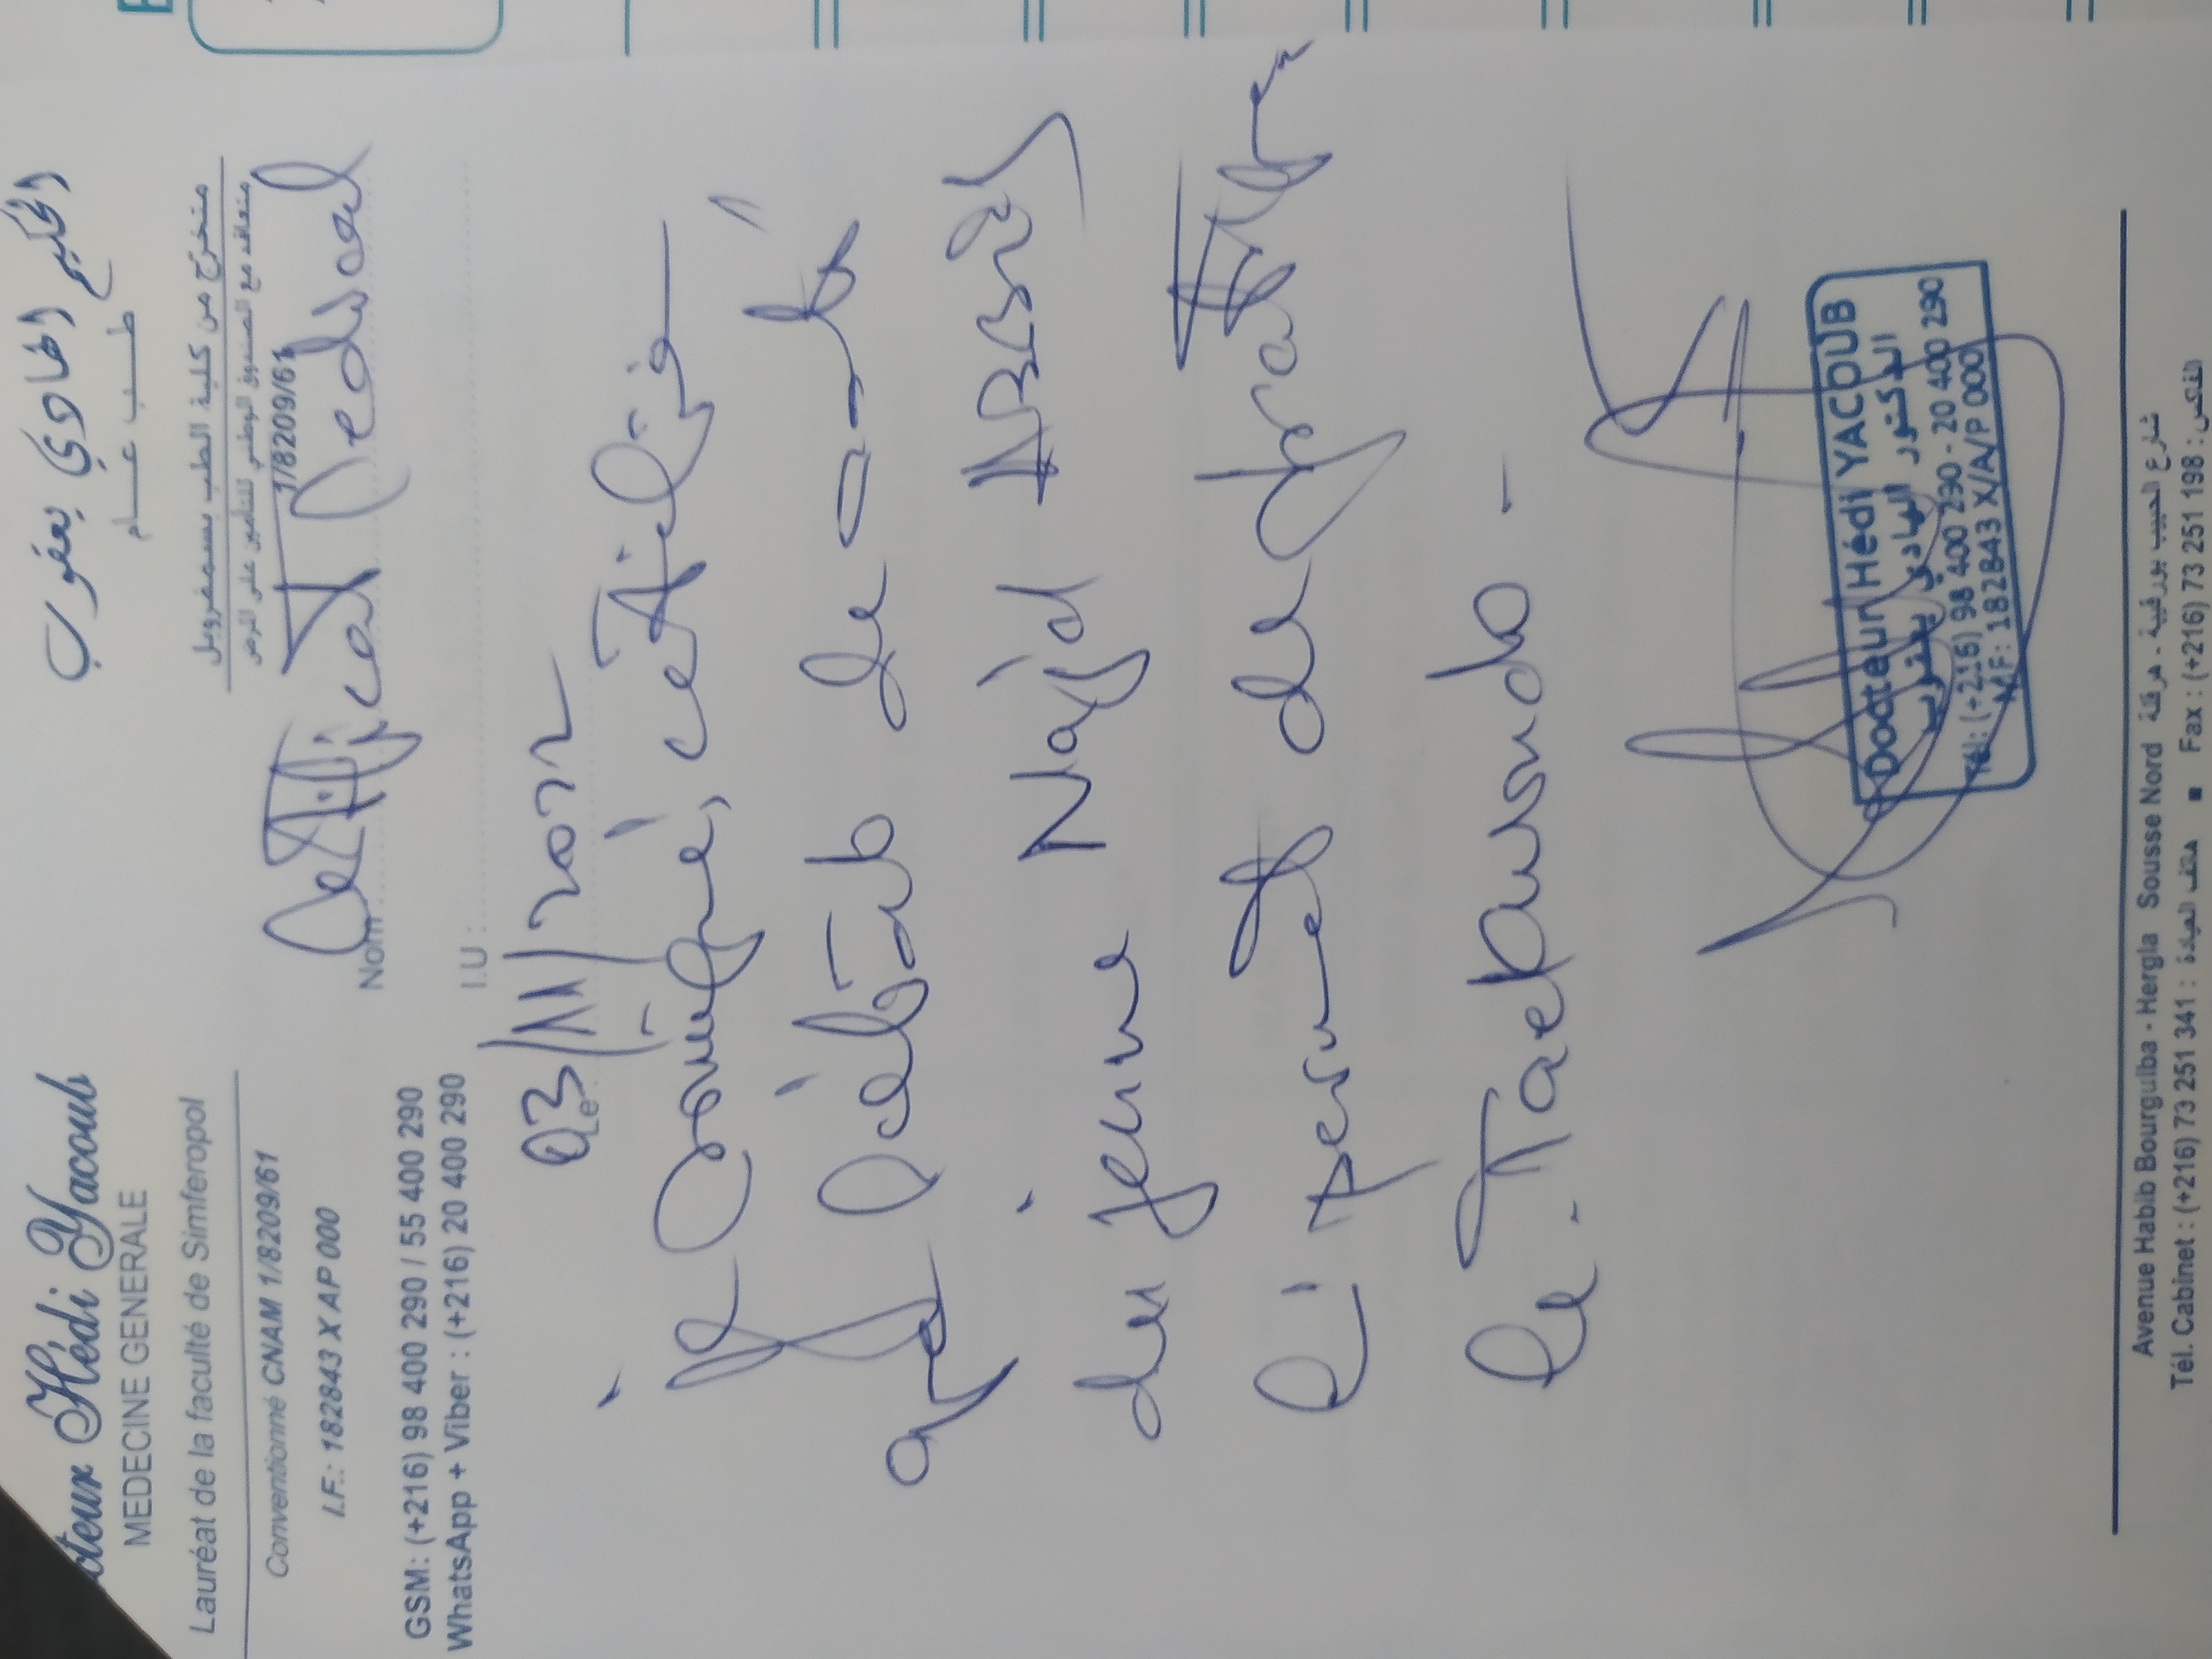 Docteur Hédi Yacoub
MEDECINE GENERALE
Lauréat de la faculté de Simferopol
Conventionné CNAM 1/8209/61
I.F.: 182843 X AP 000
GSM: (+216) 98 400 290 / 55 400 290
WhatsApp + Viber : (+216) 20 400 290
الحكيم الهادي يعقوب
طب عام
متخرج من كلية الطب بسمفروبول
متعاقد مع الصندوق الوطني للتأمين على المرض
1/8209/61
Certificat Medical
Nom
I.U :
Le 03/11/2022
Je soussigné, certifie
que l'état de santé
du jeune Najd
lui permet de pratiquer
le Taekwondo -
Docteur Hédi YACOUB
الدكتور الهادي يعقوب
Tél: (+216) 98 400 290 - 20 400 290
MF: 182843 X/A/P 000
Avenue Habib Bourguiba - Hergla Sousse Nord شارع الحبيب بورقيبة - هرقلة
Tél. Cabinet : (+216) 73 251 341 : هاتف العيادة ■ Fax : (+216) 73 251 198 : الفاكس